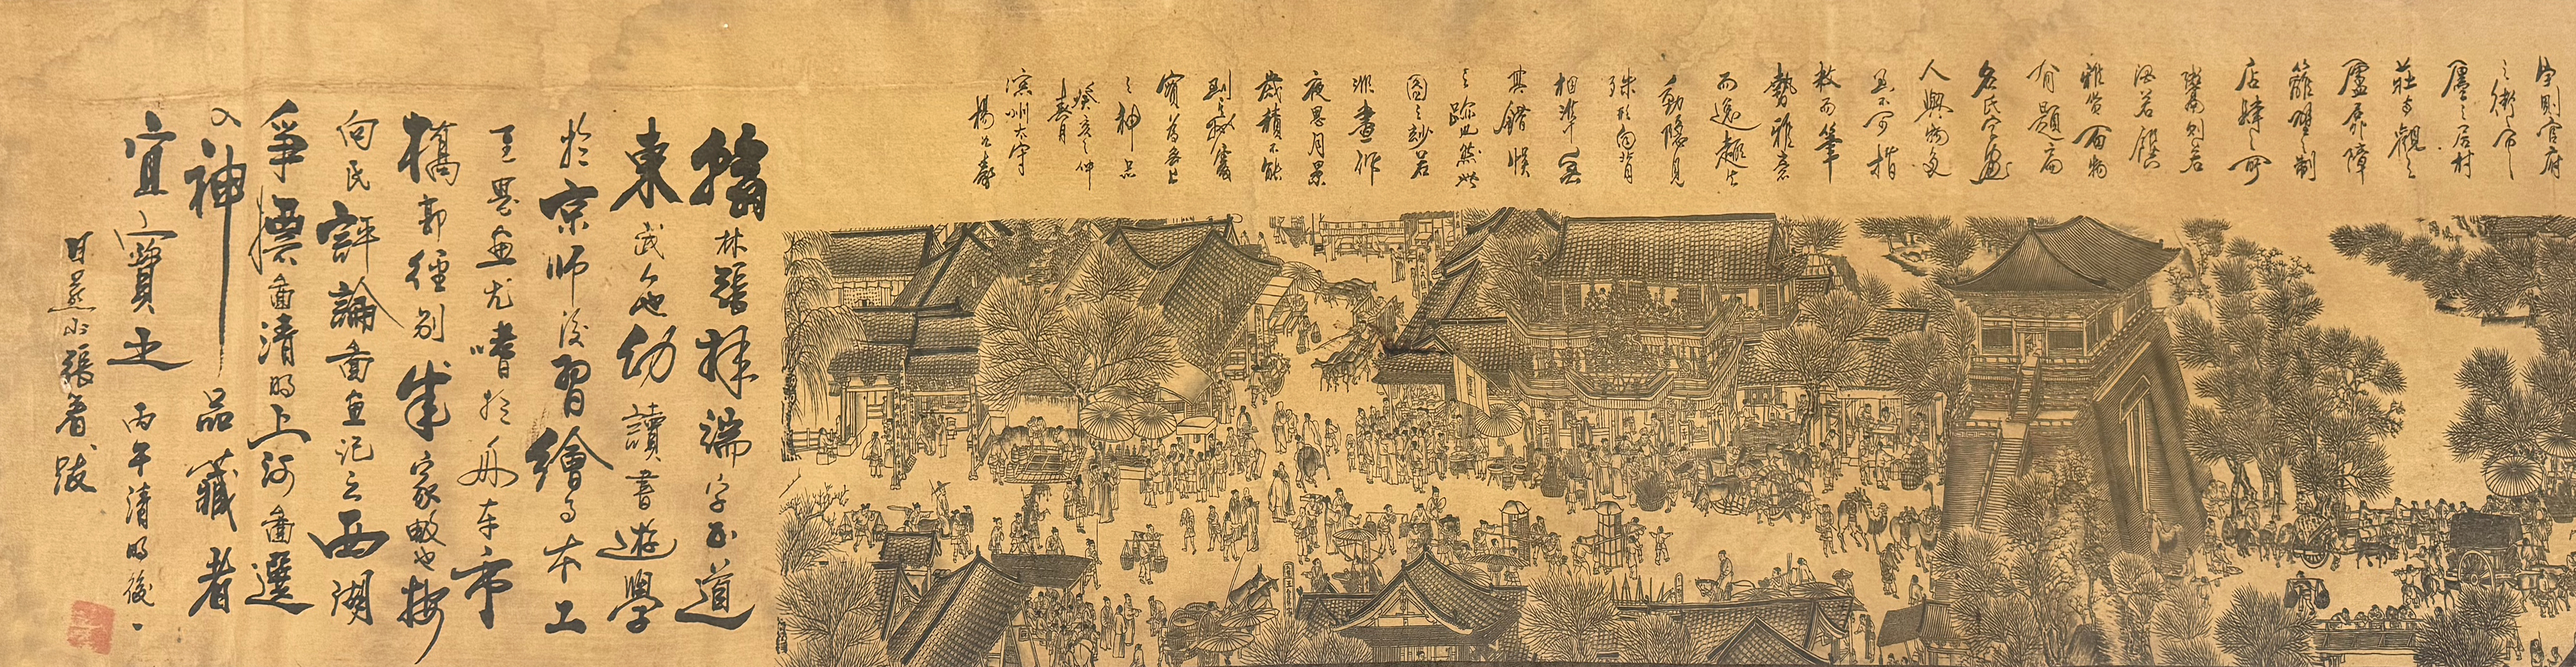 宇則官府
之衙市
廛之居村
莊寺觀之
廬屏障
籬壁之制
店肆之所
鬻則若
酒若饌
雜貨百物
有題扁
名氏字畫
人與物多
且不可指
数而筆
勢雅意
而逸趣生
動隱見
殊形向背
相準冥
其錯悞
之跡也然此
圖之妙若
非晝作
夜思月累
歲積不能
到
實爲無上
之神品
癸亥之仲
春月
滨州太守
楊
翰林張擇端字正道
東武人也幼讀書遊學
於京师後習繪事本工
至界畫尤嗜於舟車市
橋郭徑別成家數也按
向氏評論圖畫記云西湖
爭標圖清明上河圖選
入神品藏者
宜寶之 丙午清明後一
日燕山張著跋